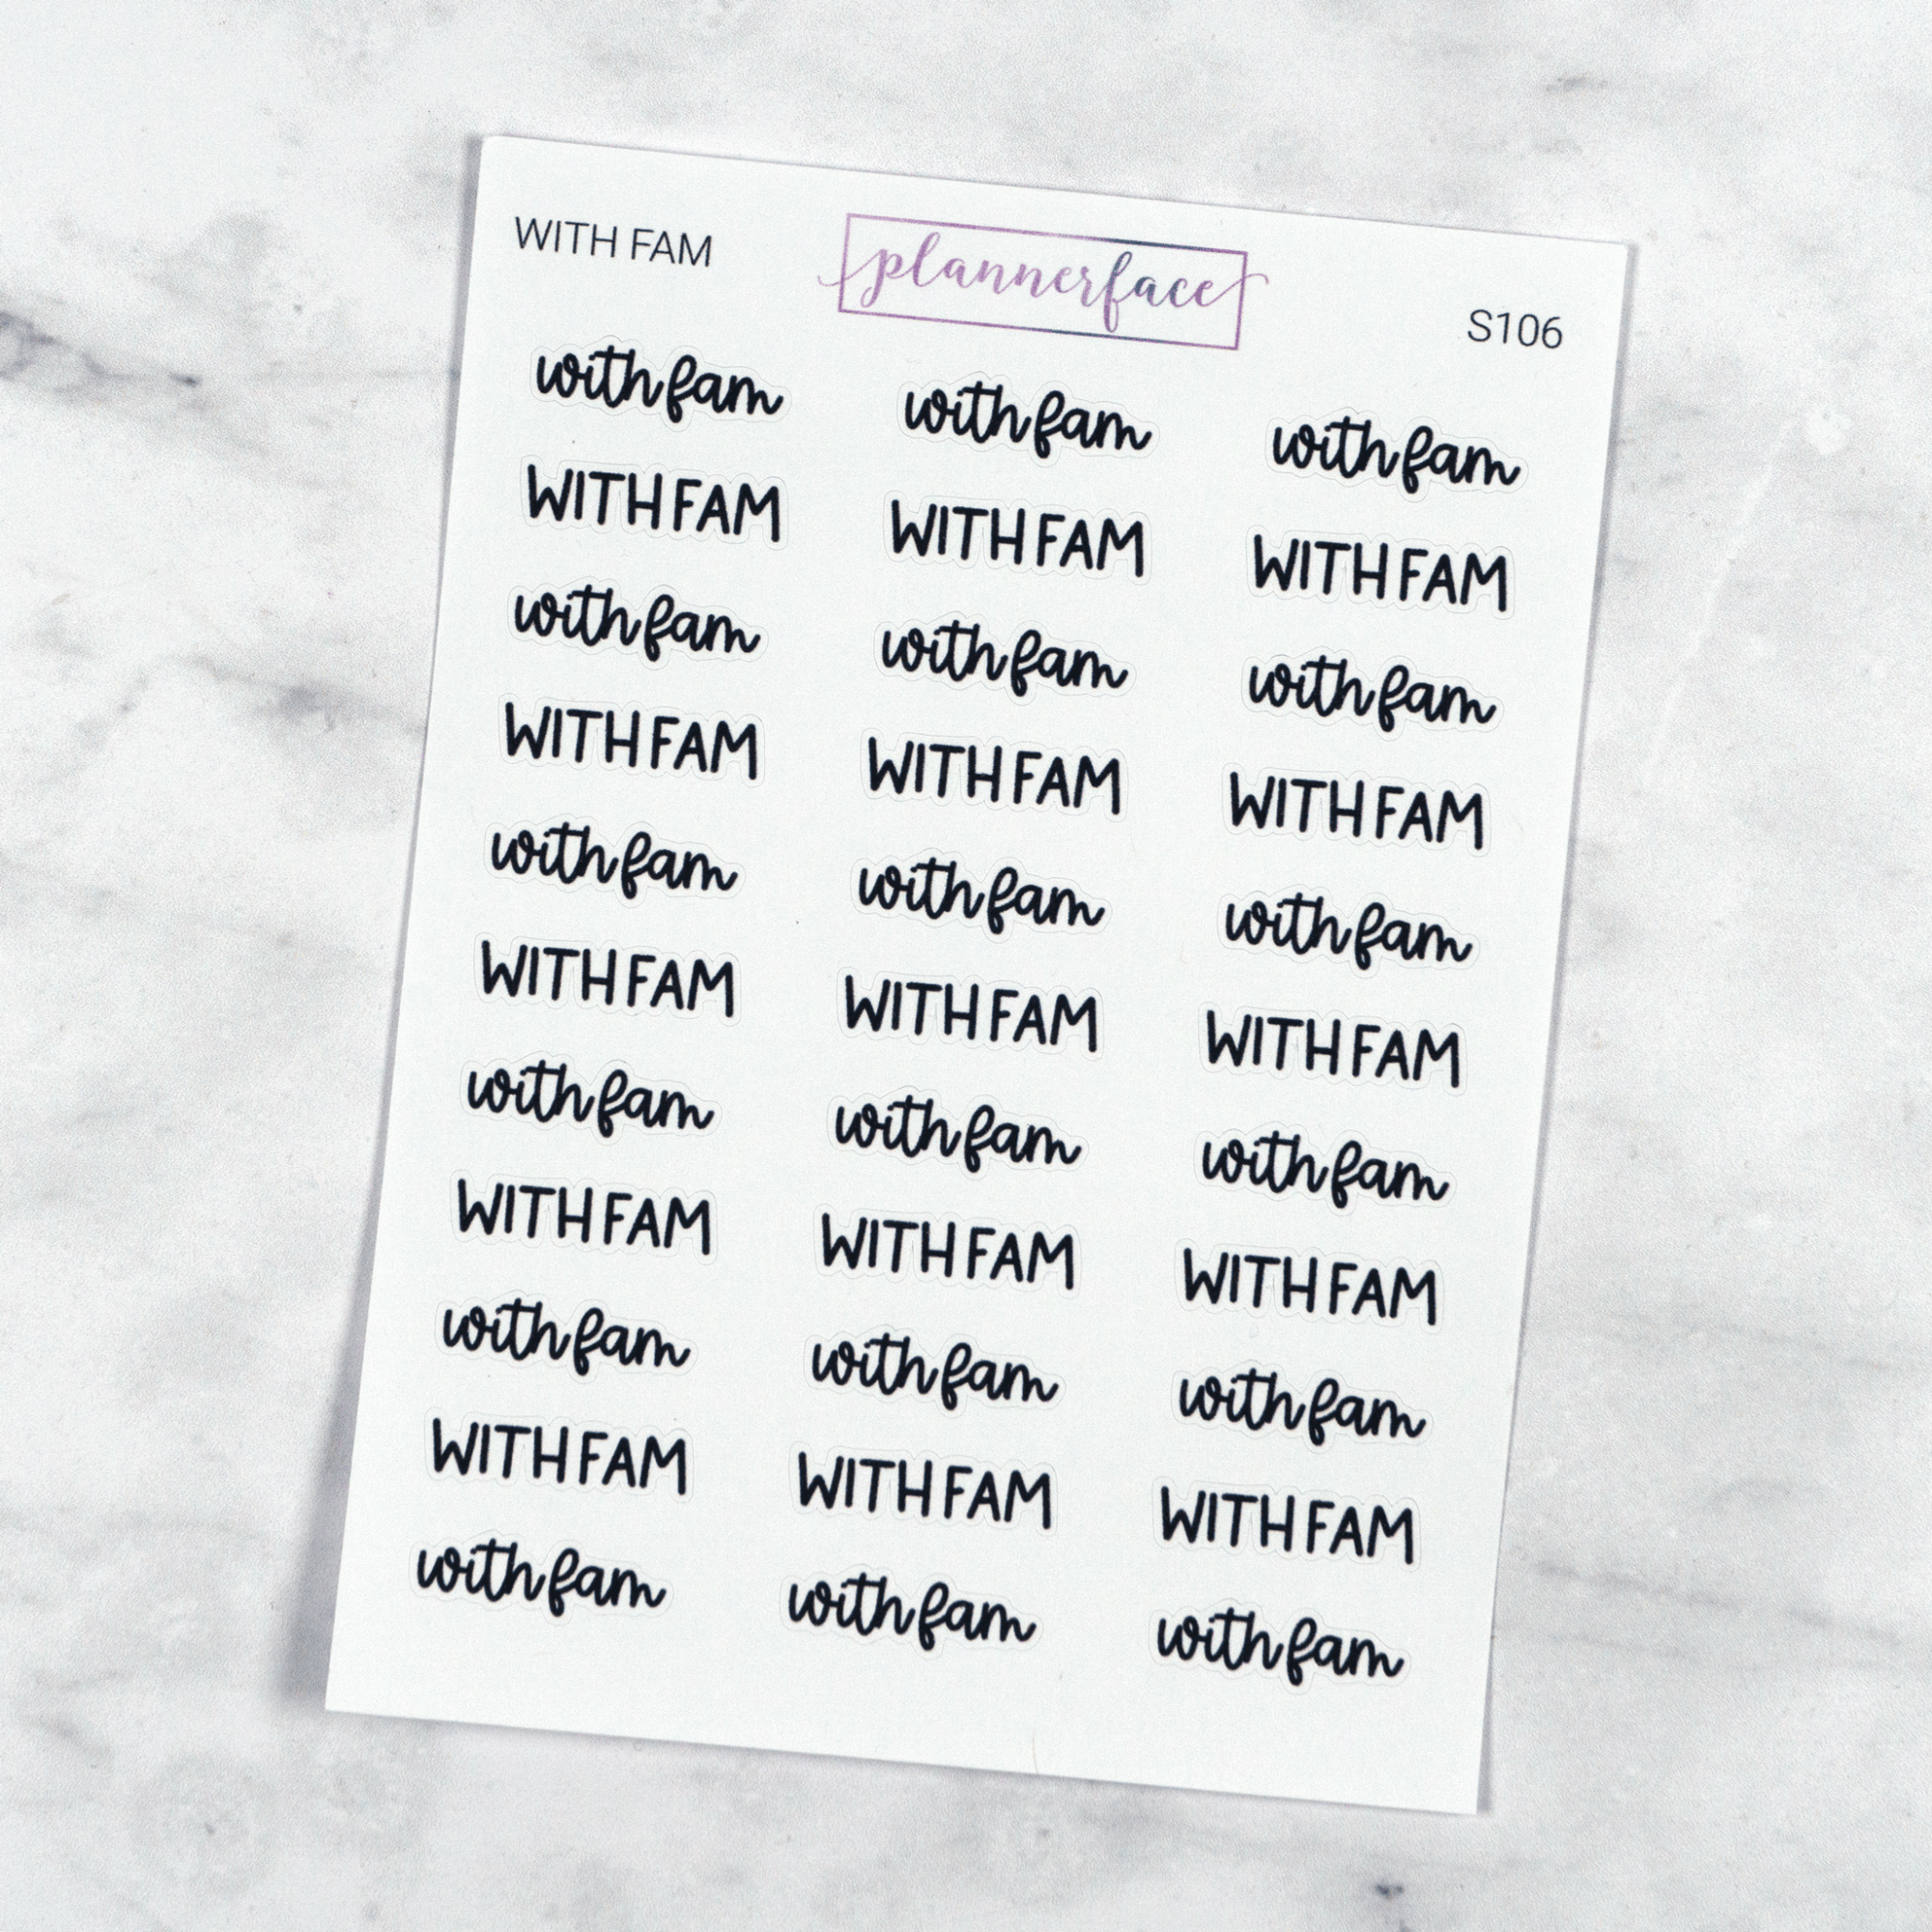 WITH FAM plannerface S106
with fam with fam with fam
WITH FAM WITH FAM WITH FAM
with fam with fam with fam
WITH FAM WITH FAM WITH FAM
with fam with fam with fam
WITH FAM WITH FAM WITH FAM
with fam with fam with fam
WITH FAM WITH FAM WITH FAM
with fam with fam with fam
WITH FAM WITH FAM WITH FAM
with fam with fam with fam